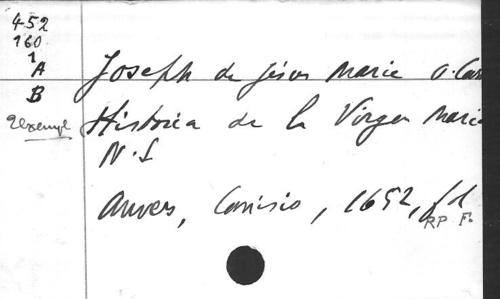 452
160
1
A
B
2 exempl
Joseph de Jésus Marie O. Car
Historia de la Virgen Maria
N. S
Anvers, Canisio, 1652, fol
RP F.